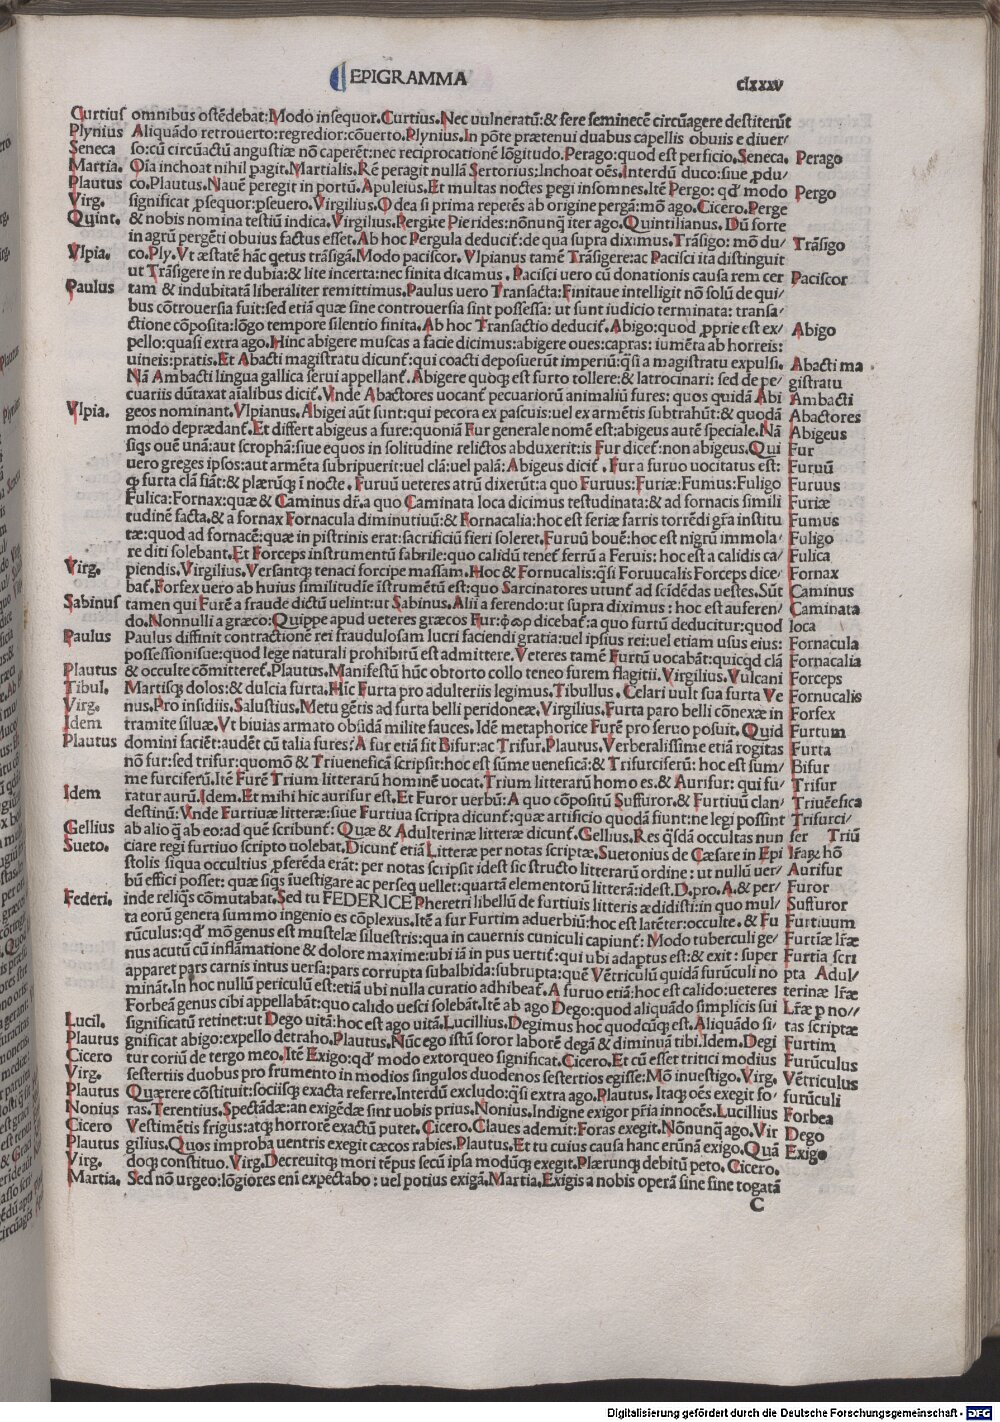 EPIGRAMMA
clxxxv
Curtius omnibus ostēdebat: Modo insequor. Curtius. Nec uulneratū: & fere seminecē circūagere destiterūt
Plynius Aliquādo retrouerto: regredior: cōuerto. Plynius. In pōte prætenui duabus capellis obuiis e diuer/
Seneca so: cū circūactū angustiæ nō caperēt: nec reciprocationē lōgitudo. Perago: quod est perficio. Seneca. Perago
Martia. Oīa inchoat nihil pagit. Martialis. Rē peragit nullā Sertorius: Inchoat oēs. Interdū duco: siue ꝓdu/
Plautus co. Plautus. Nauē peregit in portū. Apuleius. Et multas noctes pegi insomnes. Itē Pergo: qđ modo Pergo
Virg. significat ꝑsequor: ꝑseuero. Virgilius. O dea si prima repetēs ab origine pergā: mō ago. Cicero. Perge
Quint. & nobis nomina testiū indica. Virgilius. Pergite Pierides: nōnunꝗ iter ago. Quintilianus. Dū forte
in agrū pergēti obuius factus esset. Ab hoc Pergula deducit̄: de qua supra diximus. Trāsigo: mō du/ Trāsigo
Vlpia. co. Ply. Vt æstatē hāc ꝗetus trāsigā. Modo paciscor. Vlpianus tamē Trāsigere: ac Pacisci ita distinguit
ut Trāsigere in re dubia: & lite incerta: nec finita dicamus. Pacisci uero cū donationis causa rem cer Paciscor
Paulus tam & indubitatā liberaliter remittimus. Paulus uero Transacta: Finitaue intelligit nō solū de qui/
bus cōtrouersia fuit: sed etiā quæ sine controuersia sint possessa: ut sunt iudicio terminata: transa/
ctione cōposita: lōgo tempore silentio finita. Ab hoc Transactio deducit̄. Abigo: quod ꝓprie est ex/ Abigo
pello: quasi extra ago. Hinc abigere muscas a facie dicimus: abigere oues: capras: iumēta ab horreis:
uineis: pratis. Et Abacti magistratu dicunt̄: qui coacti deposuerūt imperiū: q̄si a magistratu expulsi. Abacti ma
Nā Ambacti lingua gallica serui appellant̄. Abigere quoqȝ est furto tollere: & latrocinari: sed de pe/ gistratu
cuariis dūtaxat aīalibus dicit̄. Vnde Abactores uocant̄ pecuariorū animaliū fures: quos quidā Abi Ambacti
Vlpia. geos nominant. Vlpianus. Abigei aūt sunt: qui pecora ex pascuis: uel ex armētis subtrahūt: & quodā Abactores
modo deprædant̄. Et differt abigeus a fure: quoniā Fur generale nomē est: abigeus autē speciale. Nā Abigeus
siqs ouē unā: aut scrophā: siue equos in solitudine relictos abduxerit: is Fur dicet̄: non abigeus. Qui Fur
uero greges ipsos: aut armēta subripuerit: uel clā: uel palā: Abigeus dicit̄. Fur a furuo uocitatus est: Furuū
ꝙ furta clā fiāt: & plærūqȝ ī nocte. Furuū ueteres atrū dixerūt: a quo Furuus: Furiæ: Fumus: Fuligo Furuus
Fulica: Fornax: quæ & Caminus dr̄. a quo Caminata loca dicimus testudinata: & ad fornacis simili Furiæ
tudinē facta. & a fornax Fornacula diminutiuū: & Fornacalia: hoc est feriæ farris torrēdi gr̄a institu Fumus
tæ: quod ad fornacē: quæ in pistrinis erat: sacrificiū fieri soleret. Furuū bouē: hoc est nigrū immola/ Fuligo
re diti solebant. Et Forceps instrumentū fabrile: quo calidū tenet̄ ferrū a Feruis: hoc est a calidis ca/ Fulica
Virg. piendis. Virgilius. Versantqȝ tenaci forcipe massam. Hoc & Fornucalis: q̄si Foruucalis Forceps dice/ Fornax
bat̄. Forfex uero ab huius similitudīe īstrumētū est: quo Sarcinatores utunt̄ ad scīdēdas uestes. Sūt Caminus
Sabinus tamen qui Furē a fraude dictū uelint: ut Sabinus. Alii a ferendo: ut supra diximus: hoc est auferen/ Caminata
do. Nonnulli a græco: Quippe apud ueteres græcos Fur: φωρ dicebat̄: a quo furtū deducitur: quod loca
Paulus Paulus diffinit contractionē rei fraudulosam lucri faciendi gratia: uel ipsius rei: uel etiam usus eius: Fornacula
possessionisue: quod lege naturali prohibitū est admittere. Veteres tamē Furtū uocabāt: quicqd clā Fornacalia
Plautus & occulte cōmitteret̄. Plautus. Manifestū hūc obtorto collo teneo furem flagitii. Virgilius. Vulcani Forceps
Tibul. Martisqȝ dolos: & dulcia furta. Hic Furta pro adulteriis legimus. Tibullus. Celari uult sua furta Ve Fornucalis
Virg. nus. Pro insidiis. Salustius. Metu gētis ad furta belli peridoneæ. Virgilius. Furta paro belli cōnexæ in Forfex
Idem tramite siluæ. Vt biuias armato obsidā milite fauces. Idē metaphorice Furē pro seruo posuit. Quid Furtum
Plautus domini faciēt: audēt cū talia fures? A fur etiā fit Bifur: ac Trifur. Plautus. Verberalissime etiā rogitas Furta
nō fur: sed trifur: quomō & Triueneficā scripsit: hoc est sūme ueneficā: & Trifurciferū: hoc est sum/ Bifur
me furciferū. Itē Furē Trium litterarū hominē uocat. Trium litterarū homo es. & Aurifur: qui fu/ Trifur
Idem ratur aurū. Idem. Et mihi hic aurifur est. Et Furor uerbū: A quo cōpositū Suffuror. & Furtiuū clan/ Triuēefica
destinū: Vnde Furtiuæ litteræ: siue Furtiua scripta dicunt̄: quæ artificio quodā fiunt: ne legi possint Trifurci/
Gellius ab alio q̄ ab eo: ad quē scribunt̄: Quæ & Adulterinæ litteræ dicunt̄. Gellius. Res q̄sdā occultas nun fer Triū
Sueto. ciare regi furtiuo scripto uolebat. Dicunt̄ etiā Litteræ per notas scriptæ. Suetonius de Cæsare in Epi lr̄aꝝ hō
stolis siqua occultius ꝓferēda erāt: per notas scripsit idest sic structo litterarū ordine: ut nullū uer/ Aurifur
bū effici posset: quæ siqs īuestigare ac perseq uellet: quartā elementorū litterā: idest. D. pro. A. & per/ Furor
Federi. inde reliqs cōmutabat. Sed tu FEDERICE Pheretri libellū de furtiuis litteris ædidisti: in quo mul/ Suffuror
ta eorū genera summo ingenio es cōplexus. Itē a fur Furtim aduerbiū: hoc est latēter: occulte. & Fu Furtiuum
rūculus: qđ mō genus est mustelæ siluestris: qua in cauernis cuniculi capiunt̄: Modo tuberculi ge/ Furtiæ lr̄æ
nus acutū cū inflamatione & dolore maxime: ubi iā in pus uertit̄: qui ubi adaptus est: & exit: super Furtia scri
apparet pars carnis intus uersa: pars corrupta subalbida: subrupta: quē Vētriculū quidā furūculi no pta Adul/
minā̄t. In hoc nullū periculū est: etiā ubi nulla curatio adhibeat̄. A furuo etiā: hoc est calido: ueteres terinæ lr̄æ
Forbeā genus cibi appellabāt: quo calido uesci solebāt. Itē ab ago Dego: quod aliquādo simplicis sui Lr̄æ ꝑ no//
Lucil. significatū retinet: ut Dego uitā: hoc est ago uitā. Lucillius. Degimus hoc quodcūqȝ est. Aliquādo si/ tas scriptæ
Plautus gnificat abigo: expello detraho. Plautus. Nūc ego istū soror laborē degā & diminuā tibi. Idem. Degi Furtim
Cicero tur coriū de tergo meo. Itē Exigo: qđ modo extorqueo significat. Cicero. Et cū esset tritici modius Furūculus
Virg. sestertiis duobus pro frumento in modios singulos duodenos sestertios egisse: Mō inuestigo. Virg. Vētriculus
Plautus Quærere cōstituit: sociisqȝ exacta referre. Interdū excludo: q̄si extra ago. Plautus. Itaqȝ oēs exegit fo/ furūculi
Nonius ras. Terentius. Spectādæ: an exigēdæ sint uobis prius. Nonius. Indigne exigor pr̄ia innocēs. Lucillius Forbea
Cicero Vestimētis frigus: atqȝ horrorē exactū putet. Cicero. Claues ademit: Foras exegit. Nōnunꝗ ago. Vir Dego
Plautus gilius. Quos improba uentris exegit cæcos rabies. Plautus. Et tu cuius causa hanc erūnā exigo. Quā Exigo
Virg. doqȝ constituo. Virg. Decreuitqȝ mori tēpus secū ipsa modūqȝ exegit. Plærunqȝ debitū peto. Cicero.
Martia. Sed nō urgeo: lōgiores enī expectabo: uel potius exigā. Martia. Exigis a nobis operā sine sine togatā
C
Digitalisierung gefördert durch die Deutsche Forschungsgemeinschaft - DFG